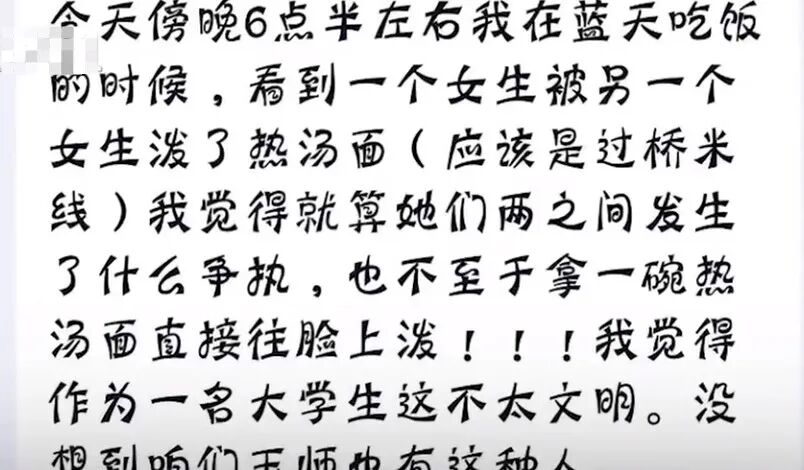 今天傍晚6点半左右我在蓝天吃饭
的时候，看到一个女生被另一个
女生泼了热汤面（应该是过桥米
线）我觉得就算她们两之间发生
了什么争执，也不至于拿一碗热
汤面直接往脸上泼！！！我觉得
作为一名大学生这不太文明。没
想到咱们玉师也有这种人